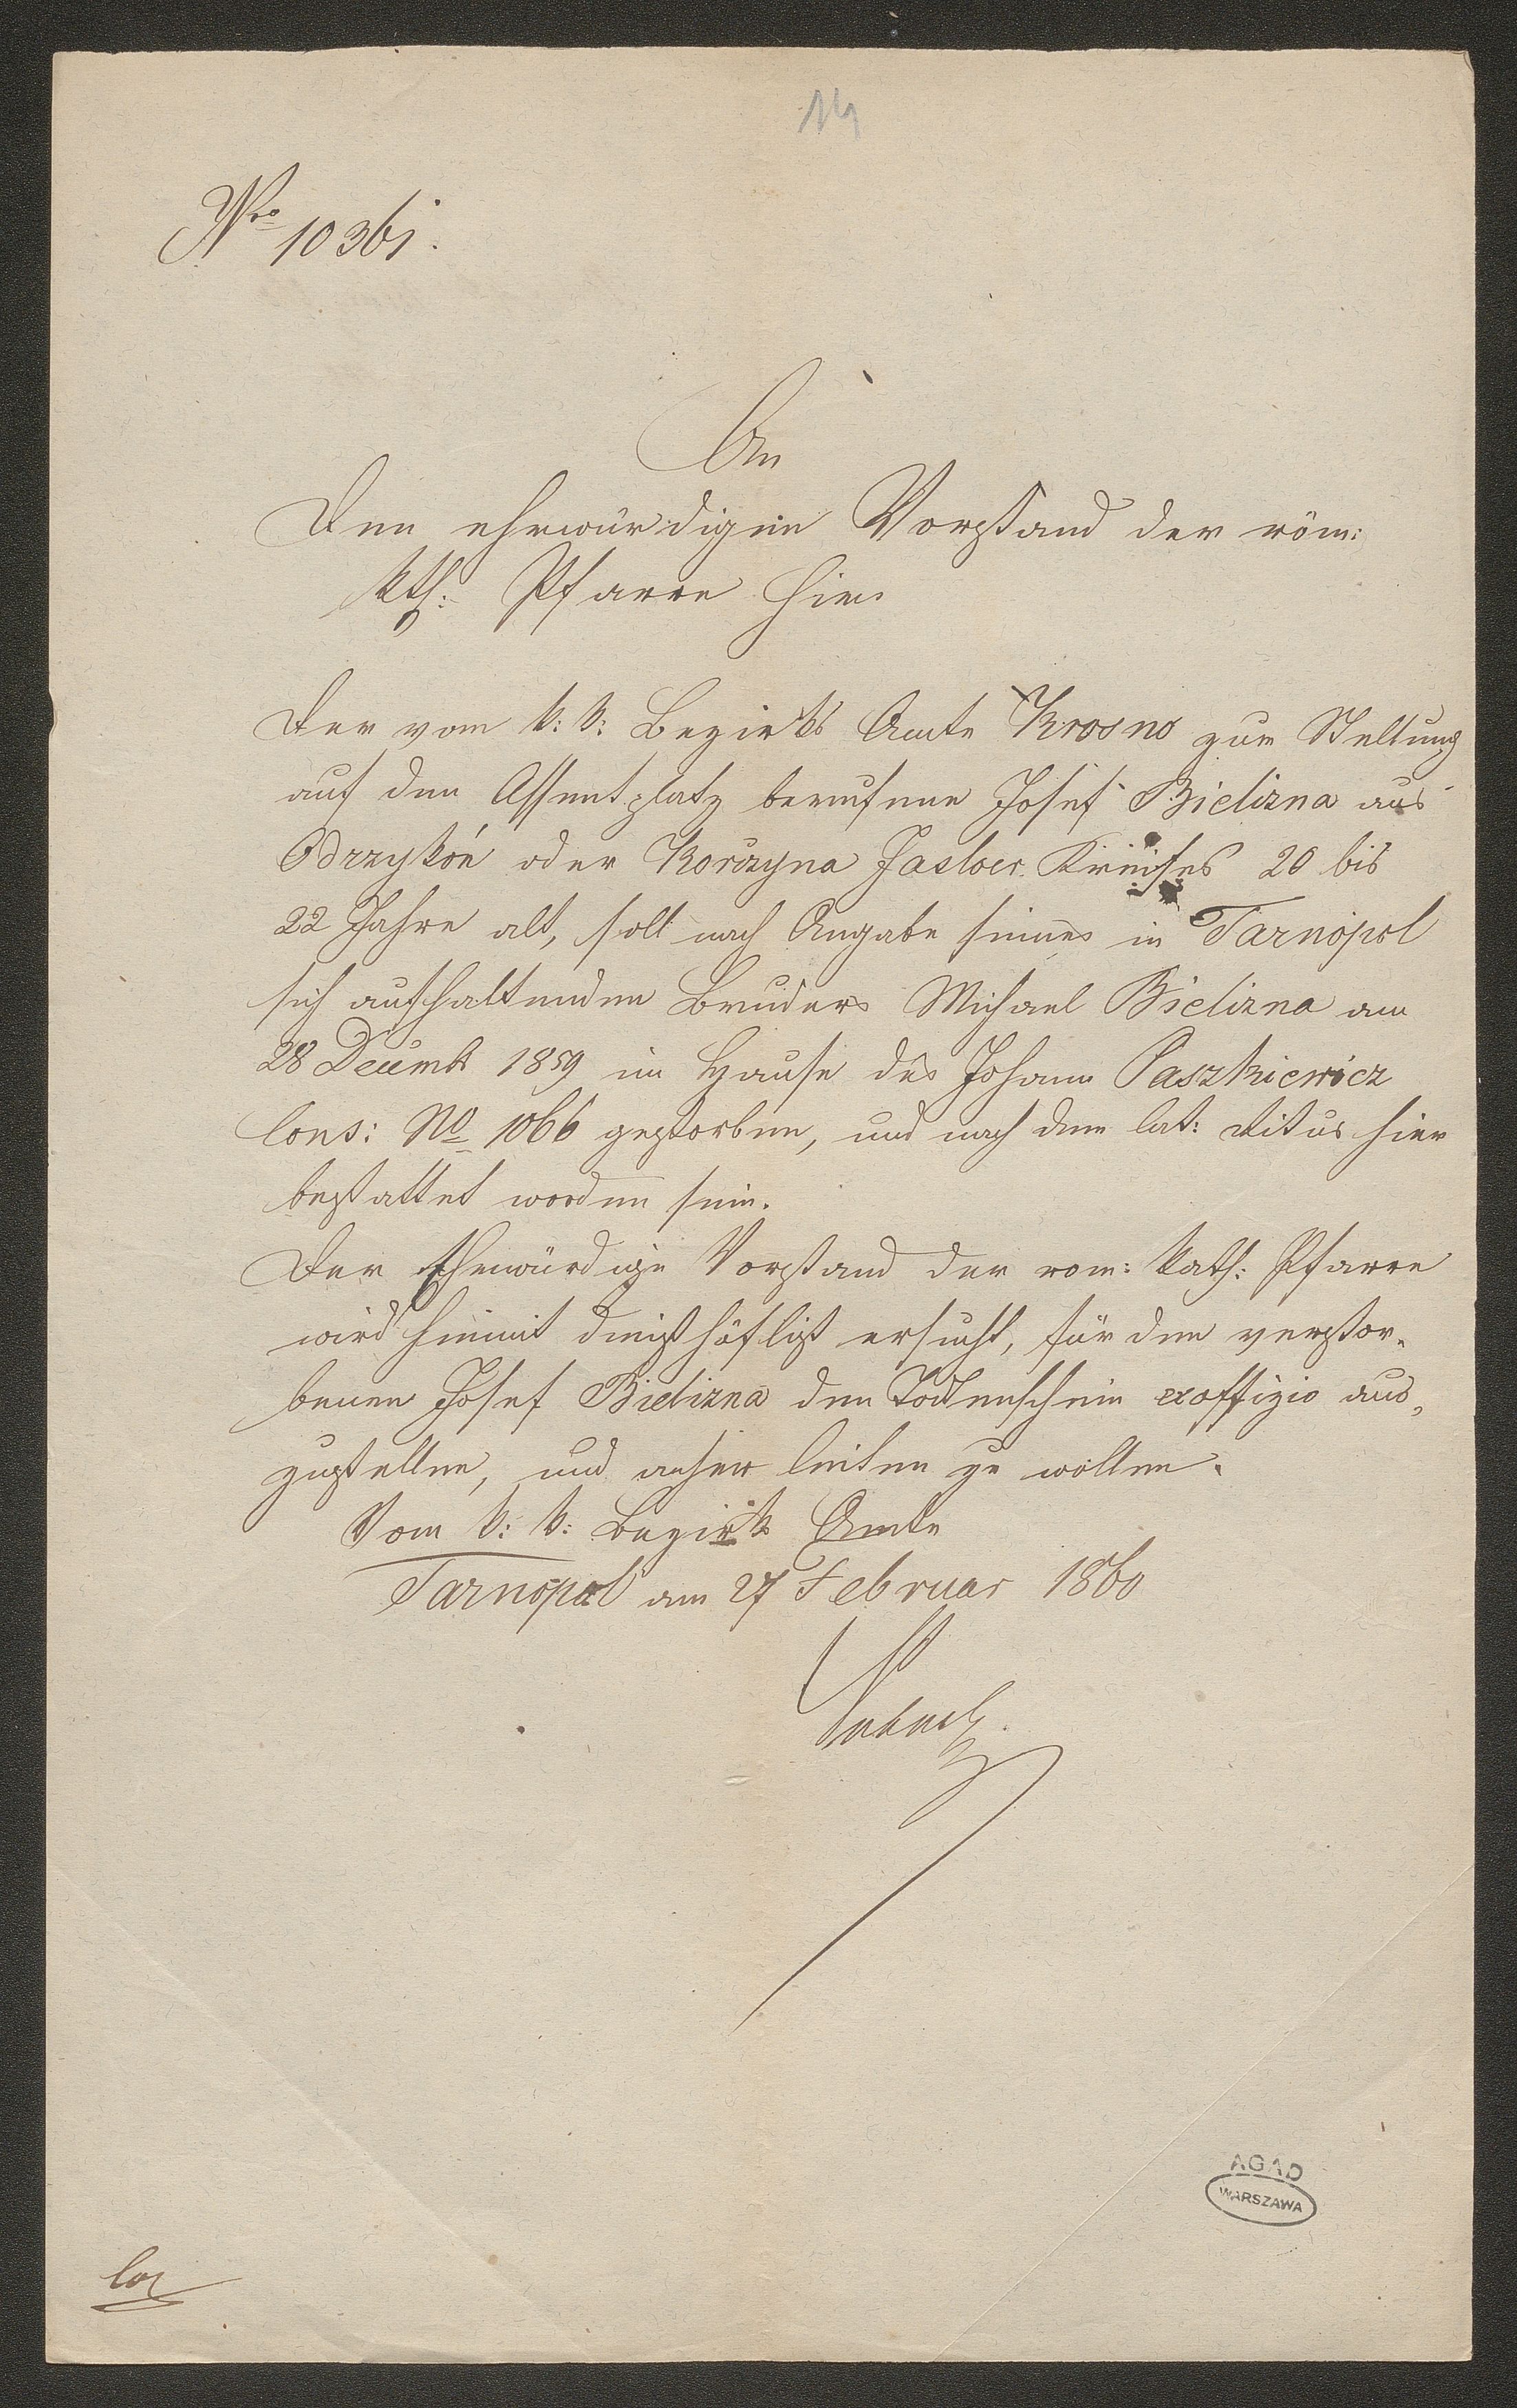 14
Nro 10361.
An
Den ehrwürdigen Vorstand der röm:
kth: Pfarre hier
Der vom k: k: Bezirks Amte Krosno zur Stellung
auf den Assentplatz berufene Josef Bielizna aus
Odrzykon oder Korczyna Jasloer Kreises 20 bis
22 Jahre alt, soll nach Angabe seines in Tarnopol
sich aufhaltenden Bruders Michael Bielizna am
28 Decemb 1859 im Hause des Johann Paszkiewicz
Cons: No 1066 gestorben, und nach dem lat: Ritus hier
bestattet worden sein.
Der Ehrwürdige Vorstand der rom: kath: Pfarre
wird hiemit diensthöflichst ersucht, für den verstor-
benen Josef Bielizna den Todtenschein exoffizio aus-
zustellen, und anher leiten zu wollen.
Vom k: k: Bezirks Amte
Tarnopol am 27 Februar 1860
AGAD
WARSZAWA